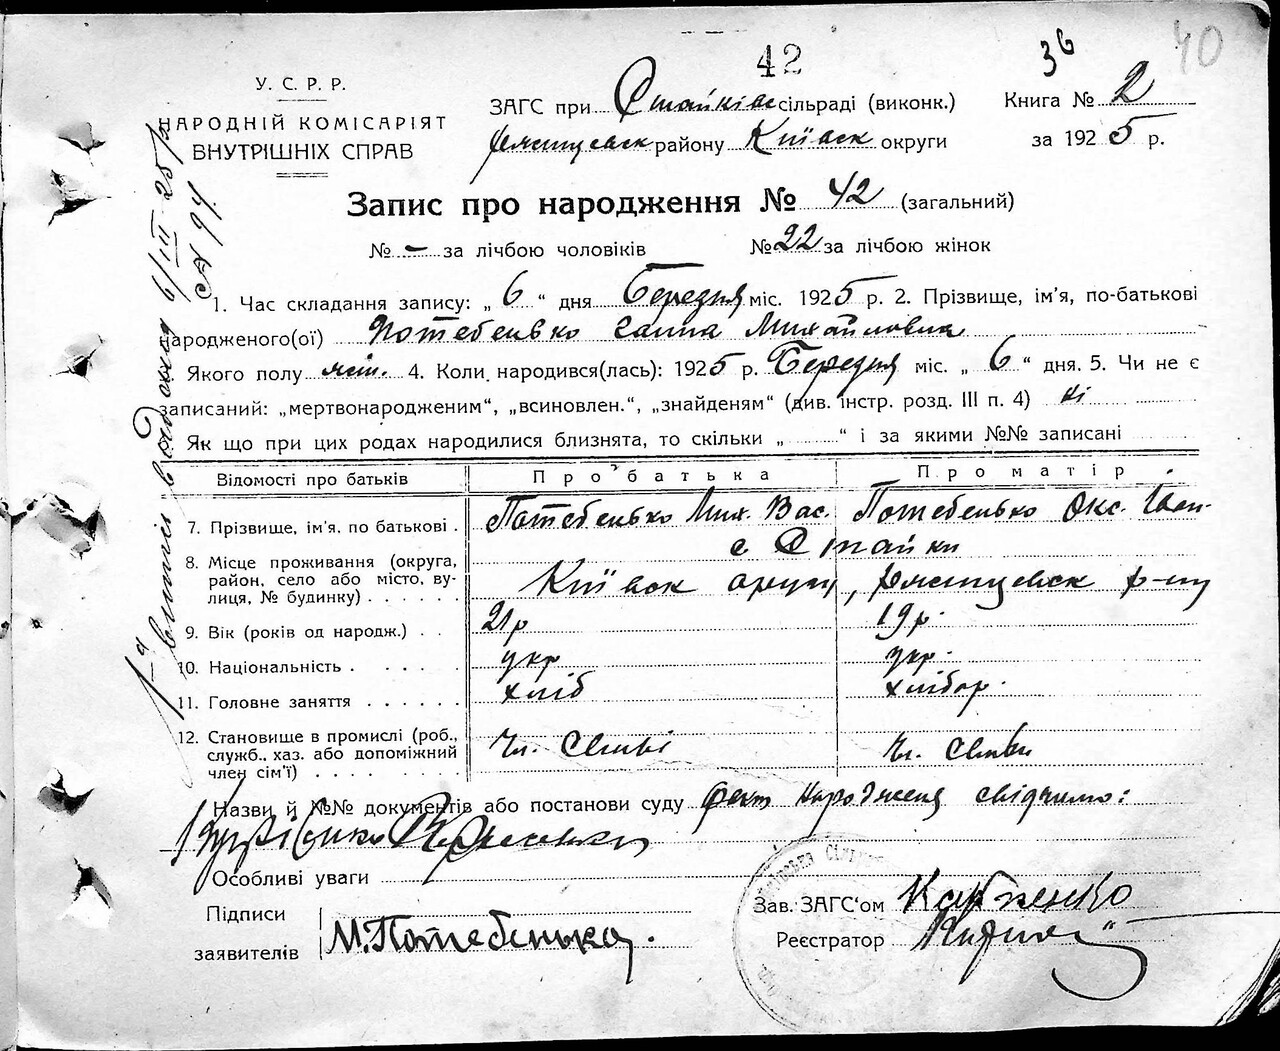 42
36
40
У. С. Р. Р.
НАРОДНІЙ КОМІСАРІЯТ
ВНУТРІШНІХ СПРАВ
ЗАГС при Стайків сільраді (виконк.)
Книга № 2
району Київск округи
за 1925 р.
Запис про народження № 42 (загальний)
№ – за лічбою чоловіків № 22 за лічбою жінок
1. Час складання запису: „ 6 “ дня Березня міс. 1925 р. 2. Прізвище, ім’я, по-батькові
народженого(ої) Потебенько Ганна Михайловна
Якого полу жін. 4. Коли народився(лась): 1925 р. Березня міс. „ 6 “ дня. 5. Чи не є
записаний: „мертвонародженим“, „всиновлен.“, „знайденям“ (див. інстр. розд. III п. 4) ні
Як що при цих родах народилися близнята, то скільки „ “ і за якими №№ записані
Відомості про батьків Про батька Про матір
7. Прізвище, ім’я, по батькові . Потебенько Мих. Вас. Потебенько Окс. Іван.
с Стайки
8. Місце проживання (округа,
район, село або місто, ву-
лиця, № будинку) . . . . . . Київск округи, р-ну
9. Вік (років од народж.) . . 21 р 19 р.
10. Національність . . . . . укр укр.
11. Головне заняття . . . . . . хліб хлібор.
12. Становище в промислі (роб.,
служб., хаз. або допоміжний
член сім’ї) . . . . Чл. семьі Чл. семьи
Назви й №№ документів або постанови суду факт народження свідчимо:
Особливі уваги
Підписи
заявителів М. Потебенько.
Зав. ЗАГС‘ом
Реєстратор
витяг видано 6/III 25 р.
№ 94